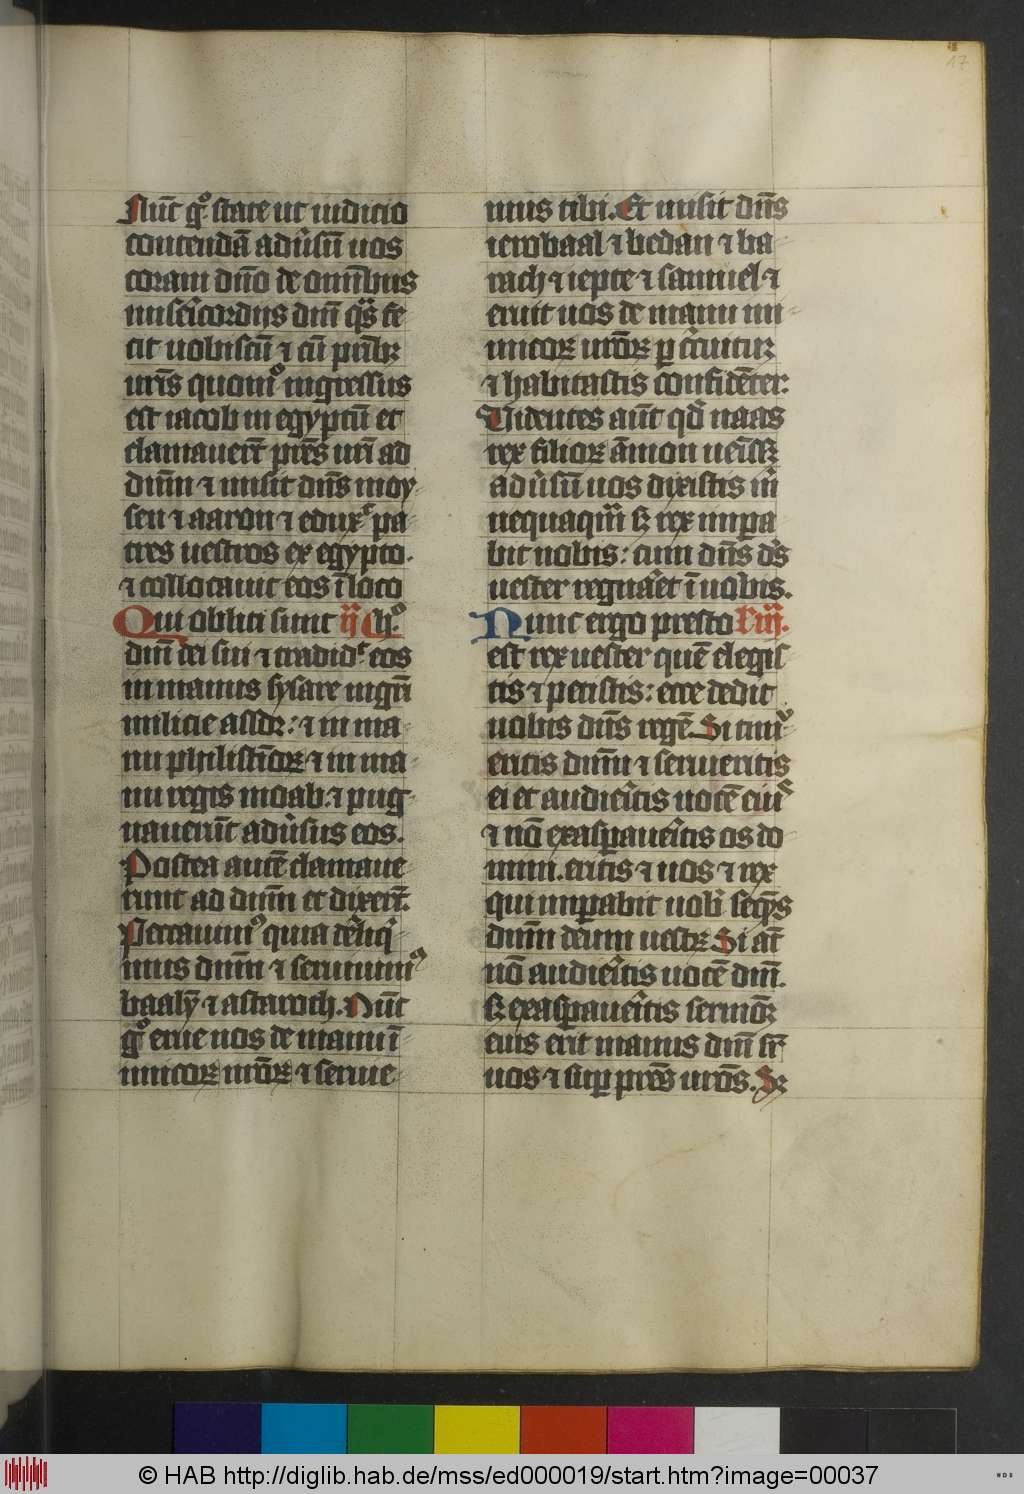 17
Nūc gͦ state ut iudicio
contendā adūsū uos
coram dn̄o de omīnbus
misēicordijs dnī qͣs fe
cit uobiscū ⁊ cū pr̄ibꝫ
ur̄is quomͦ ingressus
est iacob in egyptū et
clamauer̄t pr̄es ur̄i ad
dnm̄ ⁊ misit dn̄s moy
sen ⁊ aaron ⁊ eduxͭ pa
tres uestros ex egypto.
⁊ collocauit eos ī loco
Qui obliti sunt ij hͦ
dnī dei sui ⁊ tradidͭ eos
in manus sysare mgr̄i
milicie assoꝝ: ⁊ in ma
nu philistīoꝝ ⁊ in ma
nu regis moab. ⁊ pug
nauerūt adūsus eos.
Postea autē clamaue
runt ad dnm̄ et dixer̄t.
Peccauimꝰ quia rēliqͥ
mus dnm̄ ⁊ seruiuimꝰ
baalȳ ⁊ astaroth. Nūc
gͦ erue nos de manu ī
imicoꝝ nr̄oꝝ ⁊ serue
mus tibi. Et misit dn̄s
ierobaal ⁊ bedan ⁊ ba
rach ⁊ iepte ⁊ samuel ⁊
eruit uos de manu im
imicoꝝ ur̄oꝝ ꝑ c̄cuituꝝ
⁊ habitastis confidēter:
Uidentes aūt qd̄ naas
rex filioꝝ āmon uēisꝫ
adūsū uos dixistis m̄
nequaqm̄ sꝫ rex impa
bit nobis: cum dn̄s ds̄
uester regnāet ī uobis.
Nunc ergo presto Liij.
est rex uester quē elegis
tis ⁊ petistis: ecce dedit
uobis dn̄s regē. Si timu
eritis dnm̄ ⁊ serueritis
ei et audiēitis uocē eiuˢ
⁊ nō exasꝑauēitis os do
mini. eritis ⁊ uos ⁊ rex
qui imꝑabit uob̄ seqn̄s
dnm̄ deum uestꝝ. Si aūt
nō audiēitis uocē dnī.
sꝫ exasꝑauēitis sermōꝫ
eius erit manus dnī sr̄
uos ⁊ suꝑ pr̄es ur̄os. Sꝫ
© HAB http://diglib.hab.de/mss/ed000019/start.htm?image=00037